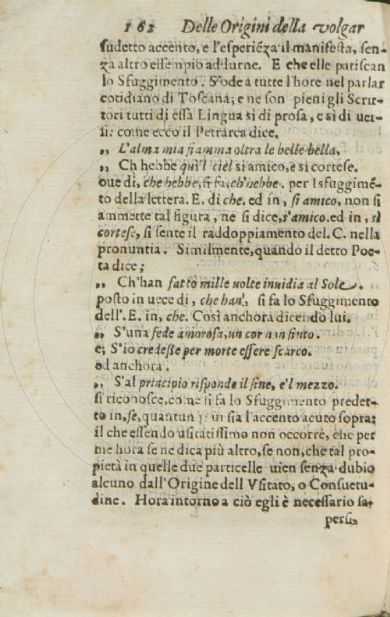 162 Delle Origini della volgar
sudetto accento, e l'esperiẽza il manifesta, sen-
za altro essempio adlurne. E che elle patiscan
lo Sfuggimento. S'ode a tutte l'hore nel parlar
cotidiano di Toscana; e ne son pieni gli Scrit-
tori tutti di essa Lingua sì di prosa, e sì di uer-
si: come ecco il Petrarca dice.
,, L'alma mia fiamma oltra le belle bella.
,, Ch'hebbe qui'l ciel sì amico, e sì cortese.
oue di, che hebbe, si fa, ch'hebbe. per l sfuggimẽ-
to della lettera. E. di che. ed in, sì amico, non si
ammette tal figura, ne si dice, s'amico. ed in, sì
cortese, si sente il raddoppiamento del. C. nella
pronuntia. Similmente, quando il detto Poe-
ta dice;
,, Ch'han fatto mille uolte inuidia al Sole.
posto in uece di, che han, si fa lo Sfuggimento
dell'. E. in, che. Così anchora dicendo lui.
,, S'una fede amorosa, un cor non finto.
e; S'io credesse per morte essere scarco.
od anchora.
,, S'al principio risponde il fine, e'l mezzo.
si riconosce, come si fa lo Sfuggimento predet-
to in, se, quantunque ui sia l'accento acuto sopra:
il che essendo usitatissimo non occorre, che per
me hora se ne dica più altro, se non, che tal pro-
pietà in quelle due particelle uien senza dubio
alcuno dall'Origine dell Vsitato, o Consuetu-
dine. Hora intorno a ciò egli è necessario sa-
persi,